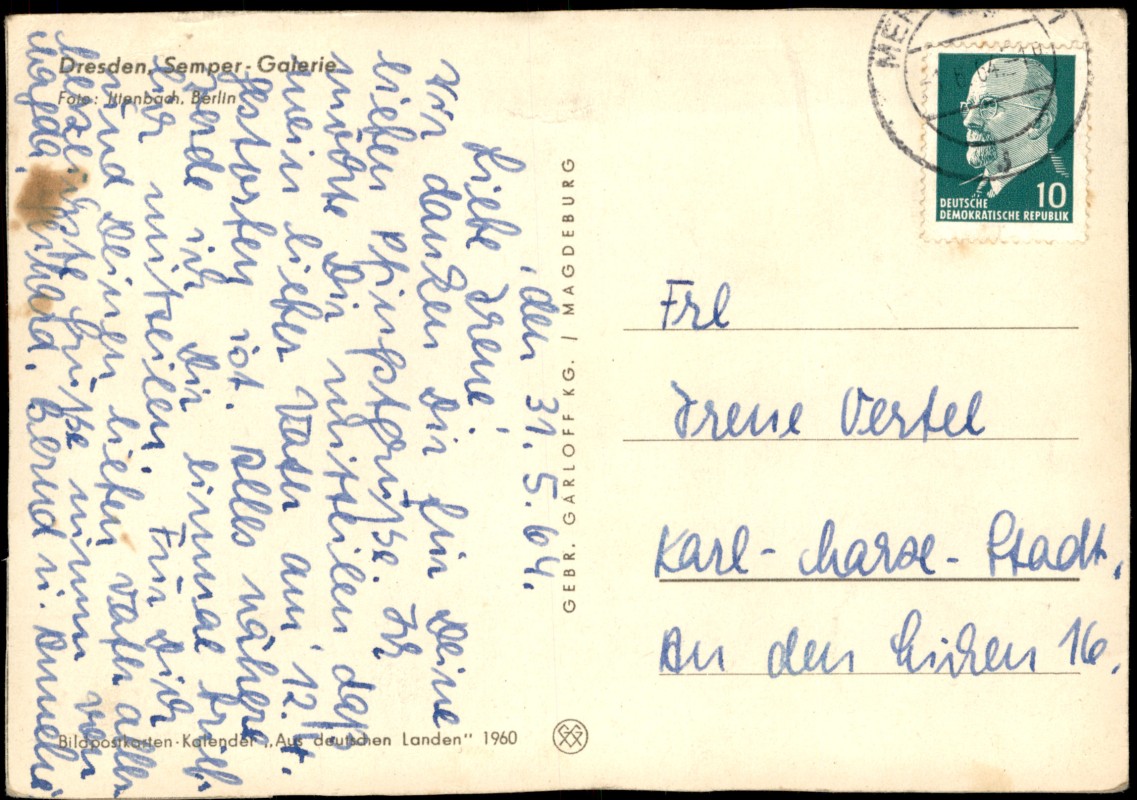 Dresden, Semper-Galerie
Foto: Ittenbach, Berlin
, den 31.5.64.
Liebe Irene!
Wir danken Dir für Deine
lieben Pfingstgrüße. Ich
möchte Dir mitteilen daß
mein lieber Vater am 12.4.
gestorben ist. Alles nähere
werde ich Dir einmal
mitteilen. Für Dich
und Deinen lieben Vati alles
herzlichste Grüße nimm von
Bernd u.
GEBR. GARLOFF KG. / MAGDEBURG
Bildpostkarten-Kalender „Aus deutschen Landen" 1960
DEUTSCHE
DEMOKRATISCHE REPUBLIK
10
Frl
Irene Vertel
Karl-Marx-Stadt.
An den 16.